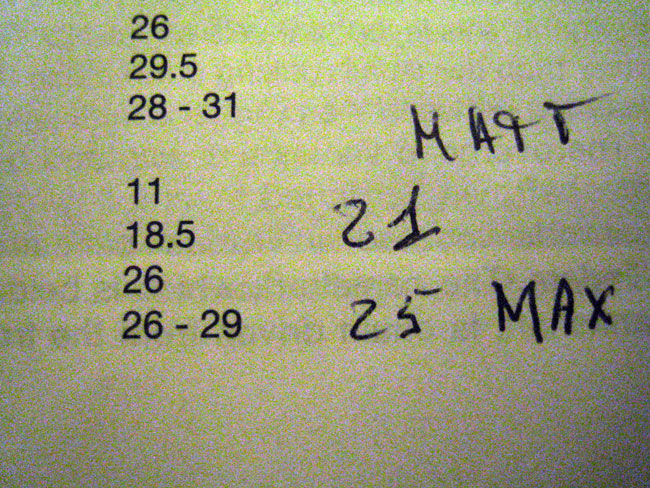 26
29.5
28 - 31
МАФТ
11
18.5 21
26
26 - 29 25 MAX